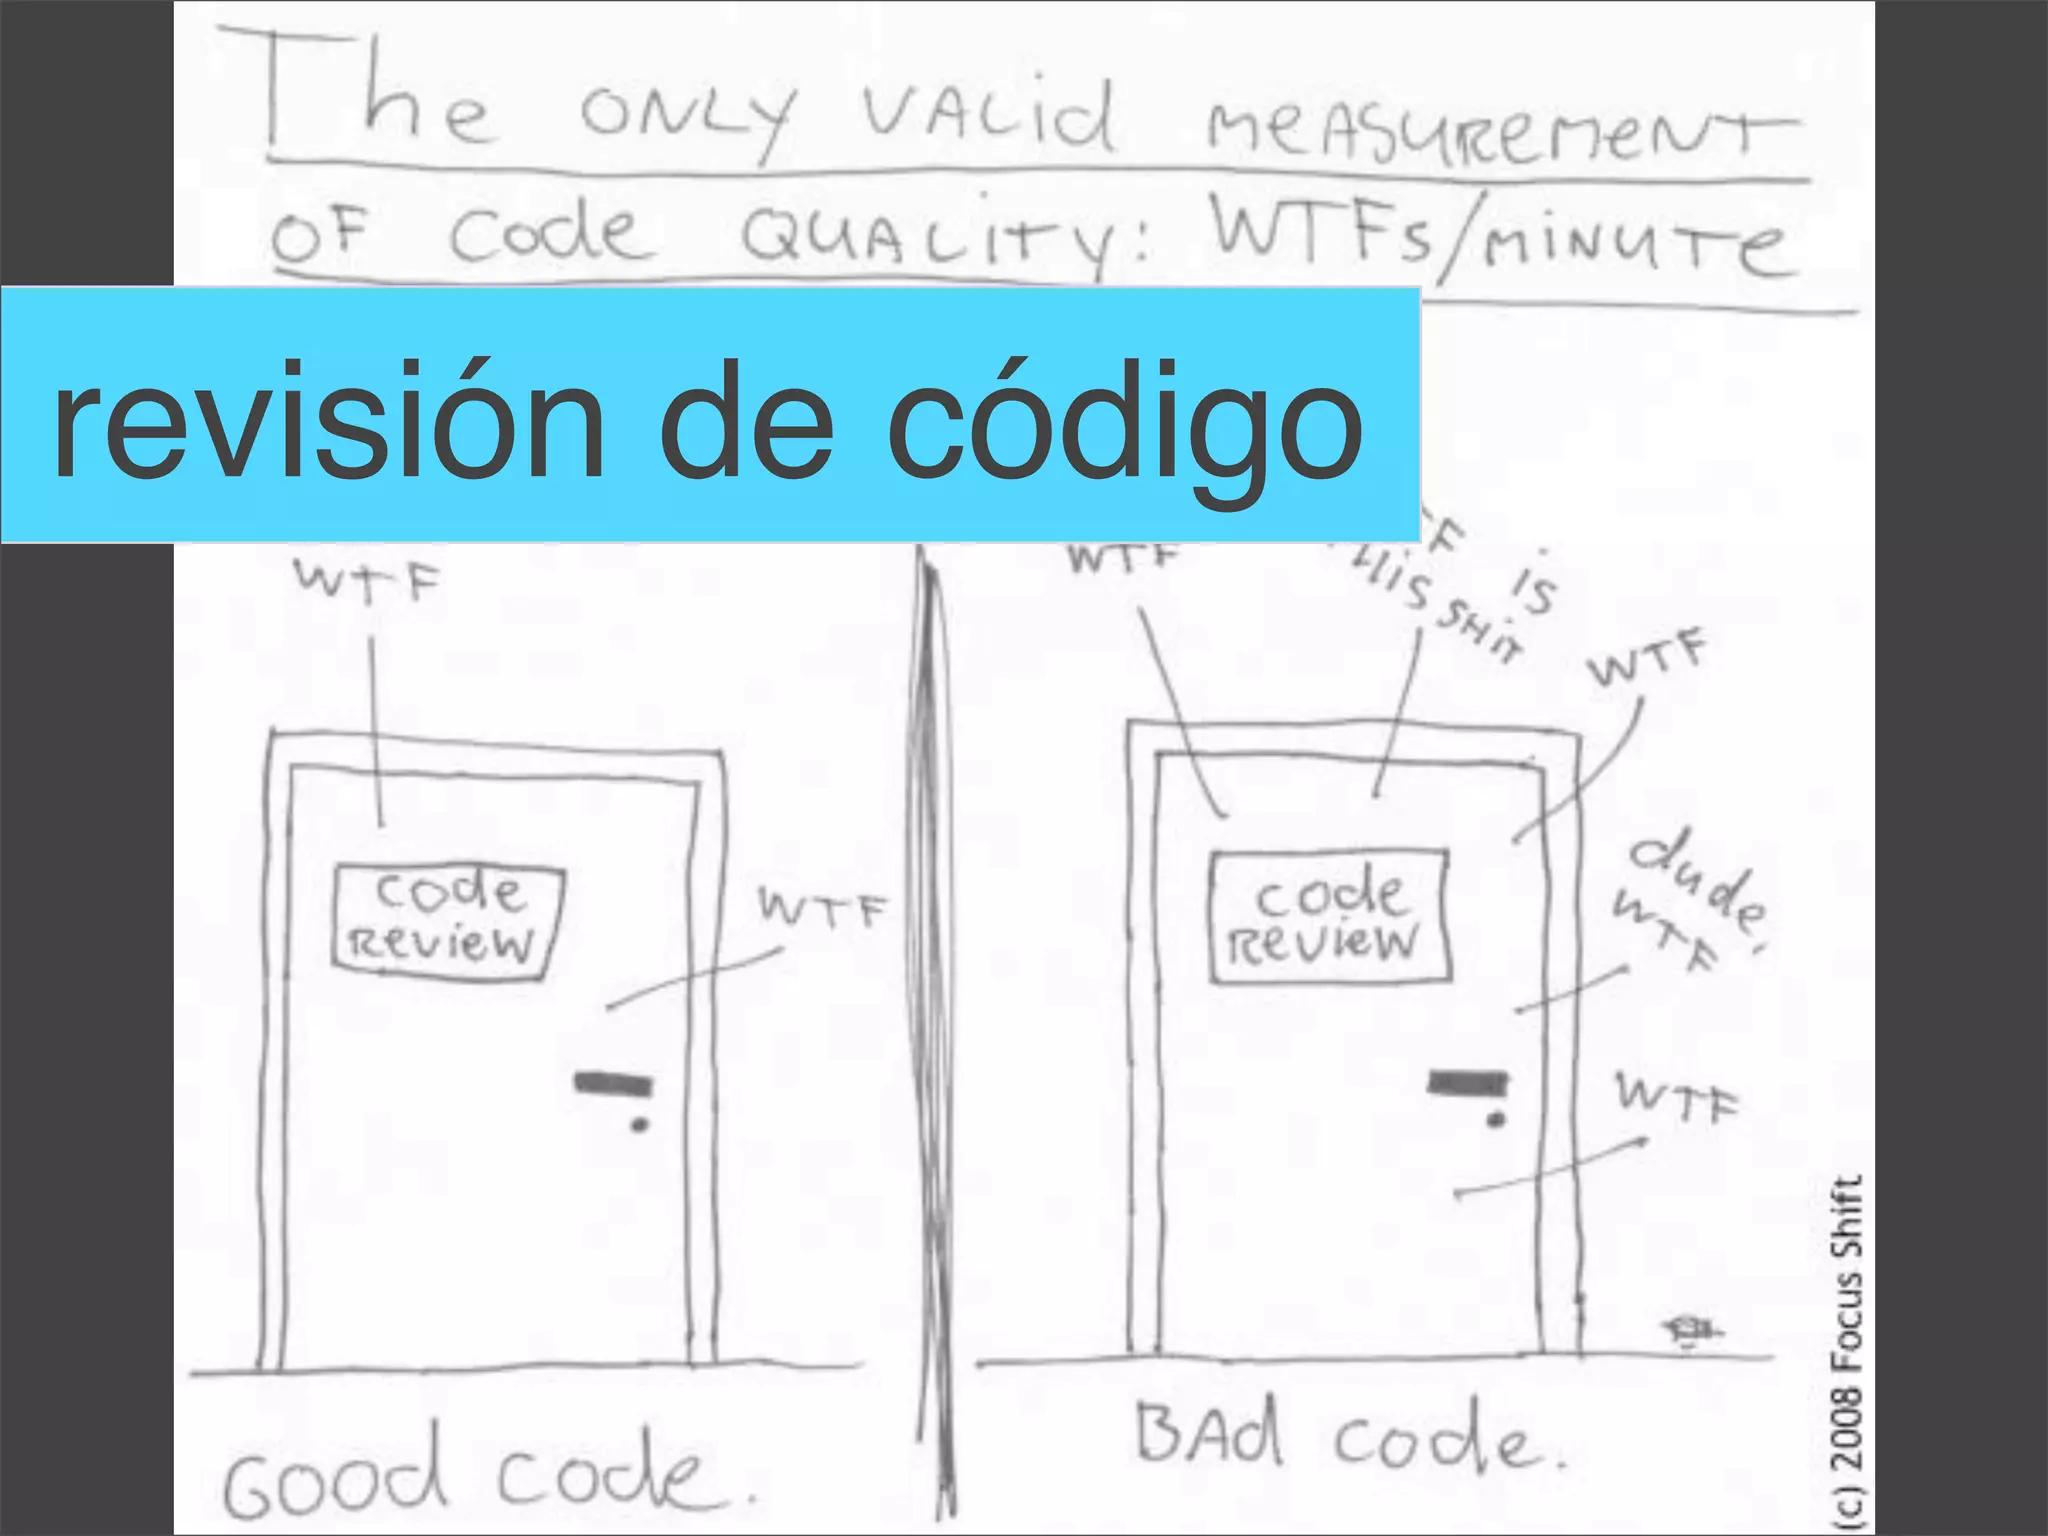 The ONLY VALid MeASUREMENT
OF Code QUALITY: WTFs/MINUTe
revisión de código
WTF
WTF
IS
THiS SHiT
WTF
WTF
code
Review
WTF
code
Review
dude,
WTF
WTF
GOOd code.
BAd code.
(c) 2008 Focus Shift